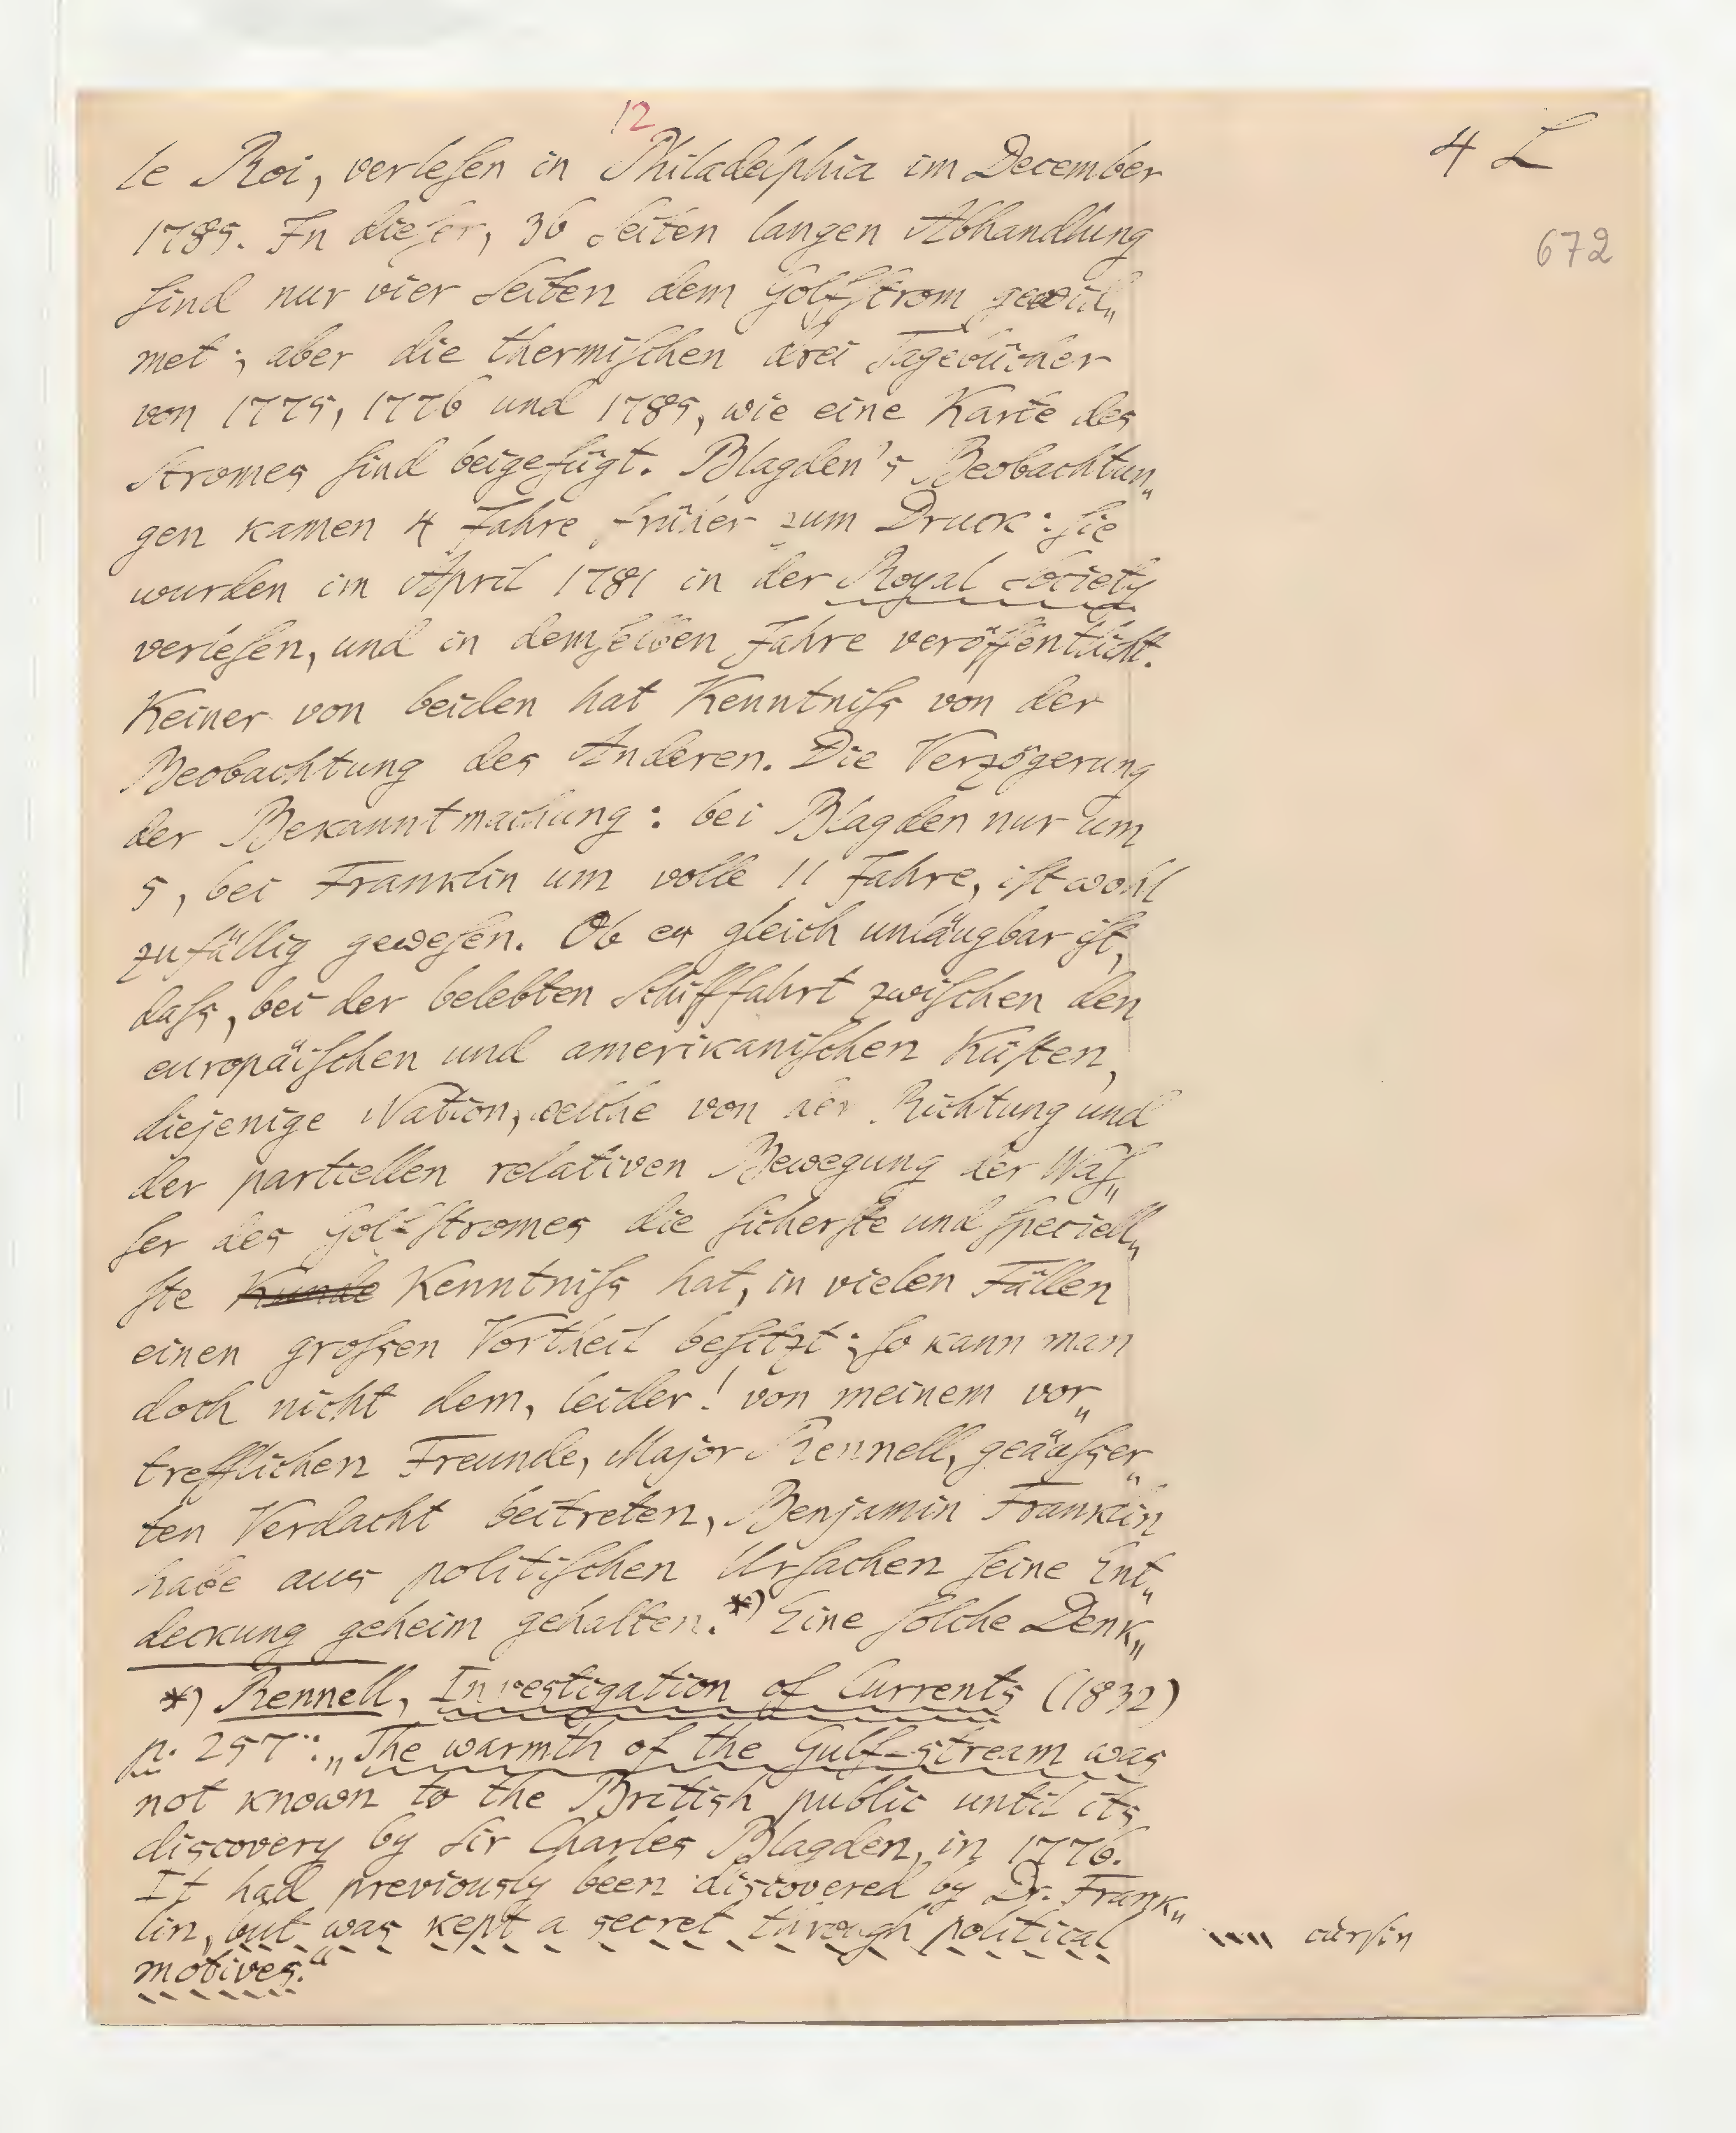 12
4 L
672
le Roi, verleſen in Philadelphia im December
1785. In dieſer, 36 Seiten langen Abhandlung
ſind nur vier Seiten dem Golfſtrom gewid„
met; aber die thermiſchen drei Tagebücher
von 1775, 1776 und 1785, wie eine Karte des
Stromes ſind beigefügt. Blagden's Beobachtun„
gen kamen 4 Jahre früher zum Druck: ſie
wurden im April 1781 in der Royal Society
verleſen, und in demſelben Jahre veröffentlicht.
Keiner von beiden hat Kenntniſs von der
Beobachtung des Anderen. Die Verzögerung
der Bekanntmachung: bei Blagden nur um
5, bei Franklin um volle 11 Jahre, iſt wohl
zufällig geweſen. Ob es gleich unläugbar iſt,
daſs, bei der belebten Schifffahrt zwiſchen den
europäiſchen und amerikaniſchen Küſten,
diejenige Nation, welche von der Richtung und
der partiellen relativen Bewegung der Waſ„
ſer des Golf-Stromes die ſicherſte und ſpeciell„
ſte Kunde Kenntniſs hat, in vielen Fällen
einen groſsen Vortheil beſitzt; ſo kann man
doch nicht dem, leider! von meinem vor„
trefflichen Freunde, Major Rennell, geäuſser„
ten Verdacht beitreten, Benjamin Franklin
habe aus politiſchen Urſachen ſeine Ent„
deckung geheim gehalten.*) Eine ſolche Denk„
*) Rennell, Investigation of Currents (1832)
p. 257: „The warmth of the Gulf-stream was
not known to the British public until its
discovery by Sir Charles Blagden, in 1776.
It had previously been discovered by Dr. Frank„
lin, but was kept a secret through political
motives.“
curſiv